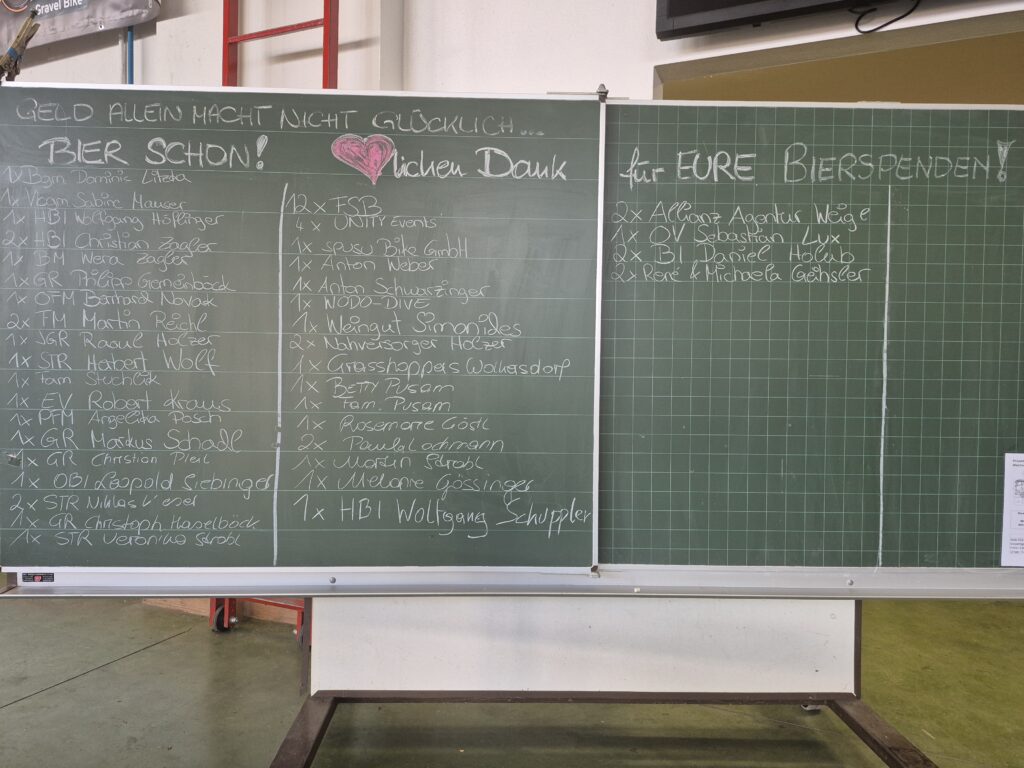 Gravel Bike
GELD ALLEIN MACHT NICHT GLÜCKLICH...
BIER SCHON!
lichen Dank
für EURE BIERSPENDEN!
1x Bgm Dominic Litzka
1x Vbgm Sabine Mauser
1x HBI Wolfgang Höflinger
2x HBI Christian Zagler
1x BM Vera Zagler
1x GR Philipp Gemeinböck
1x OFM Bernhard Novak
2x FM Martin Reichl
1x JGR Raoul Holzer
1x STR Hubert Wolf
1x Fam Stuchlik
1x EV Robert Kraus
1x PFM Angelika Posch
1x GR Markus Schadl
1x GR Christian Pleil
1x OBI Leopold Siebinger
2x STR Niklas
1x GR Christoph Haselböck
1x STR Veronika Strobl
12x FSB
4x UNITY Events
1x spusu Bike GmbH
1x Anton Weber
1x Anton Schwarzinger
1x NODO-DIVE
1x Weingut Simonides
2x Nahversorger Holzer
1x Grasshoppers Wolkersdorf
1x BETTY Pusam
1x Fam. Pusam
1x Rosemarie Göstl
2x Paul Lachmann
1x Martin Strobl
1x Melanie Gössinger
1x HBI Wolfgang Schuppler
2x Allianz Agentur Weigl
1x OV Sebastian Lux
2x BI Daniel Holub
2x René & Michaela Gahsler